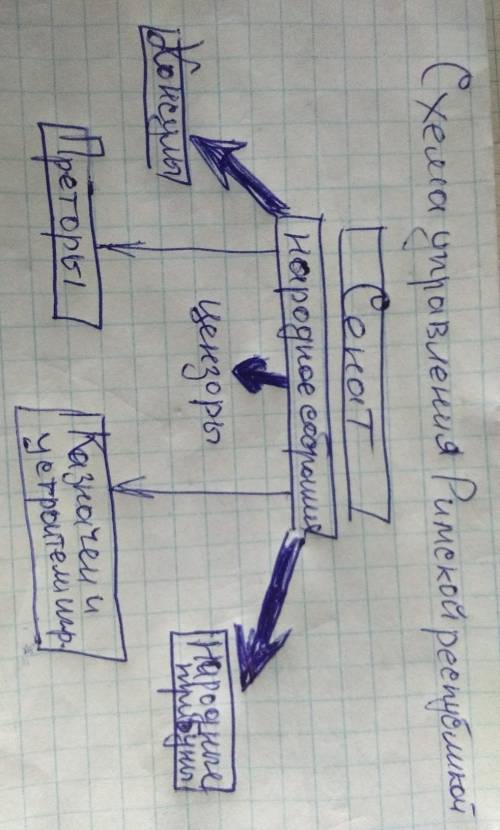 Схема управления Римской республикой
Сенат
Народное собрание
Консулы
Преторы
цензоры
Казначеи и
устроители игр.
Народные
трибуны